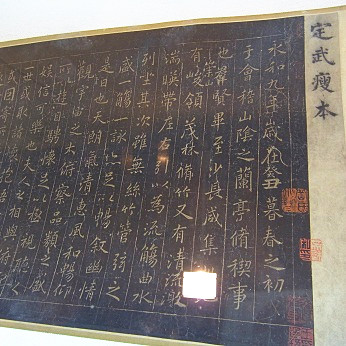 定武瘦本
永和九年歲在癸丑暮春之初
于會稽山陰之蘭亭脩禊事
也羣賢畢至少長咸集
有崇山峻領茂林脩竹又有清流激
湍暎帶左右引以為流觴曲水
列坐其次雖無絲竹管弦之
盛一觴一詠亦足以暢叙幽情
是日也天朗氣清惠風和暢仰
觀宇宙之大俯察品類之盛
所以遊目騁懷足以極視聽之
娛信可樂也夫人之相與俯仰
一世或取諸懷抱